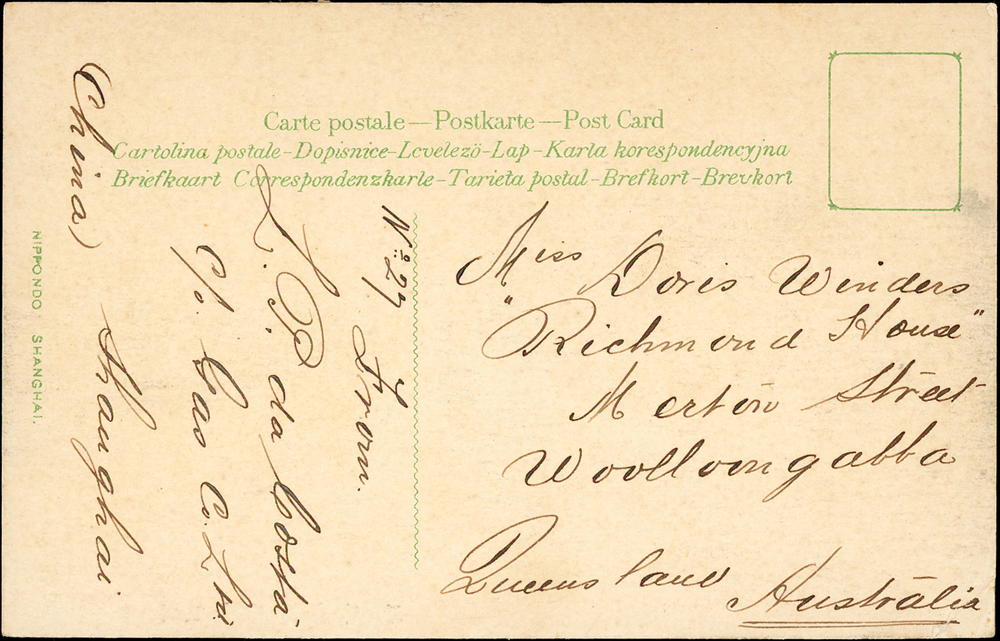 Carte postale—Postkarte—Post Card
Cartolina postale-Dopisnice-Levelezö-Lap-Karta korespondencyjna
Briefkaart Correspondenzkarte-Tarjeta postal-Brefkort-Brevkort
Miss Doris Winders
"Richmond House"
Merton Street
Woolloongabba
Queensland
Australia
No. 27 From.
L. P. da Costa
c/o. Gas Co. Ltd.
Shanghai
(China)
NIPPONDO SHANGHAI.